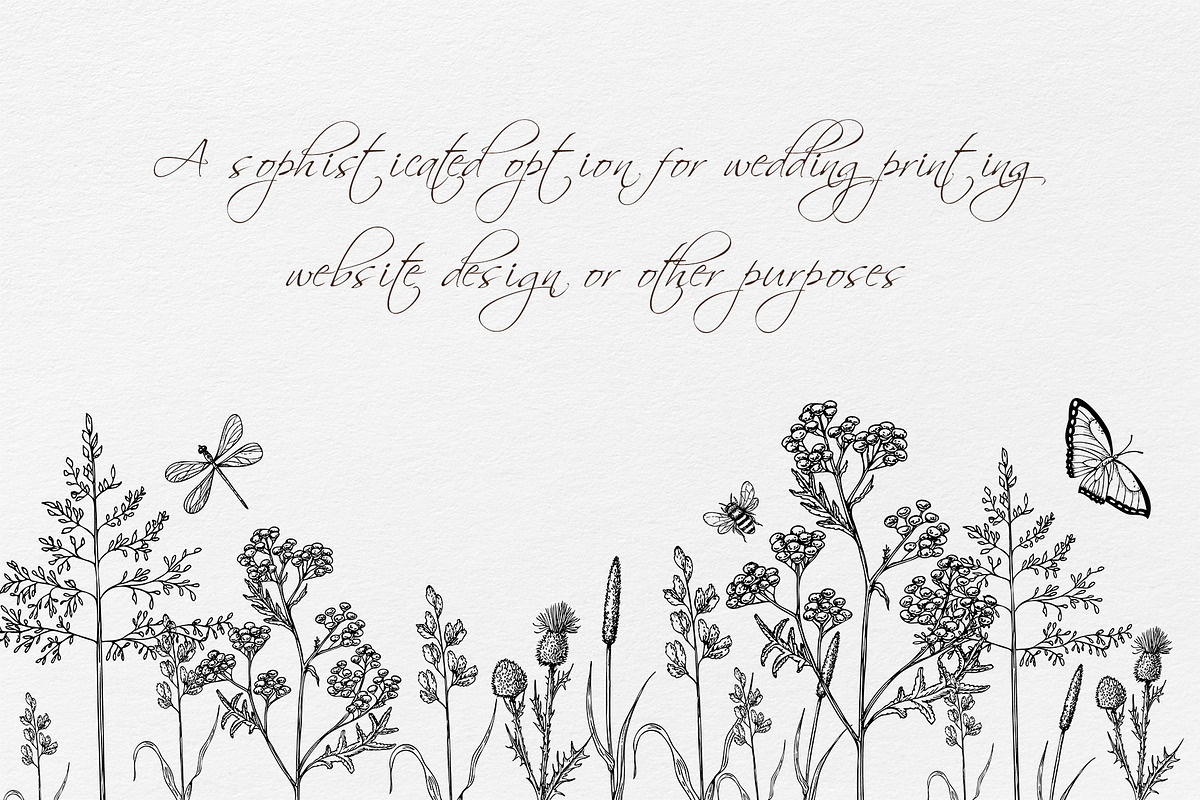 A sophisticated option for wedding printing
website design or other purposes